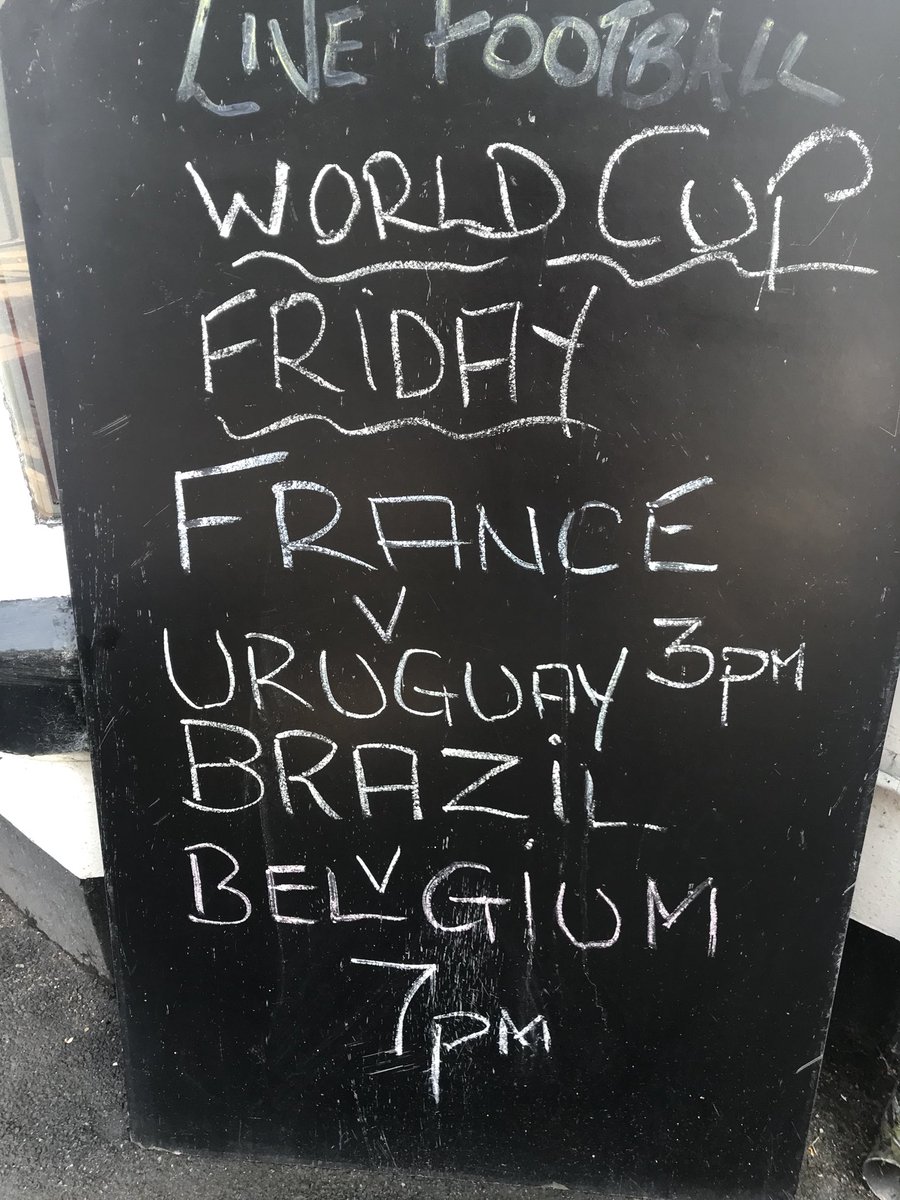 LIVE FOOTBALL
WORLD CUP
FRIDAY
FRANCE
V
URUGUAY 3pm
BRAZIL
V
BELGIUM
7pm